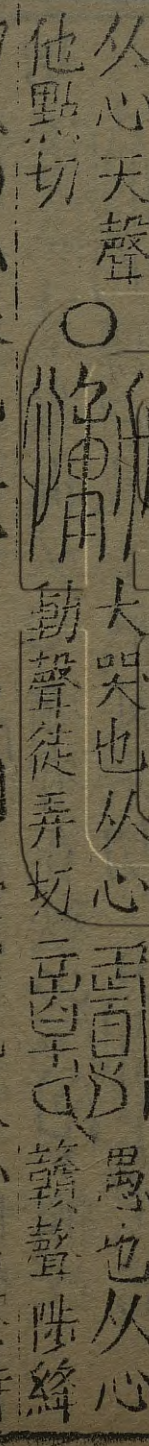 从心天聲
他點切
○
慟
大哭也从心
動聲徒弄切
戇
愚也从心
贛聲陟絳切